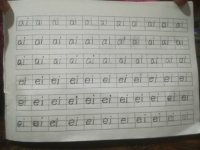 ai ai ai ai ai ai ai ai ai ai
ai ai ai ai ai ai ai ai ai ai
ai ai ai ai ai ai ai ai ai ai
ei ei ei ei ei ei ei ei ei ei
ei ei ei ei ei ei ei ei ei ei
ei ei ei ei ei ei ei ei ei ei